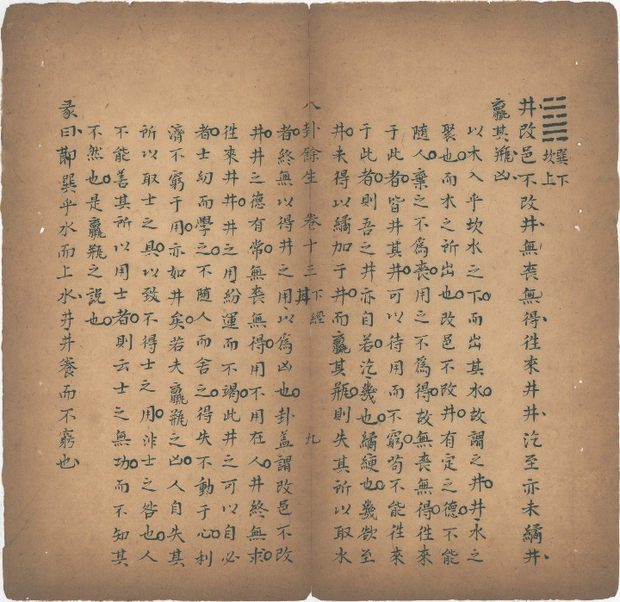 巽下
坎上
井改邑不改井無喪無得徃來井井汔至亦未繘井
羸其瓶凶
以木入乎坎水之下而出其水故謂之井井水之
聚也而木之所出也改邑不改井有定之德不能
随人棄之不爲喪用之不爲得故無喪無得徃來
于此者皆井其井可以待用而不窮苟不能徃來
于此者則吾之井亦自若汔幾也繘綆也幾欲至
井未得以繘加于井而羸其瓶則失其所以取水
八卦餘生 卷十三 下經 井 九
者終無以得井之用以爲凶也卦盖謂改邑不改
井井之德有常無喪無得用不用在人井終無求
徃來井井井之用紛運而不竭此井之可以自必
者士幼而學之不随人而舍之得失不動于心利
濟不窮于用亦如井矣若夫羸瓶之凶人自失其
所以取士之具以致不得士之用非士之咎也人
不能善其所以用士者則云士之無功而不知其
不然也是羸瓶之説也
彖曰巽乎水而上水井井養而不窮也